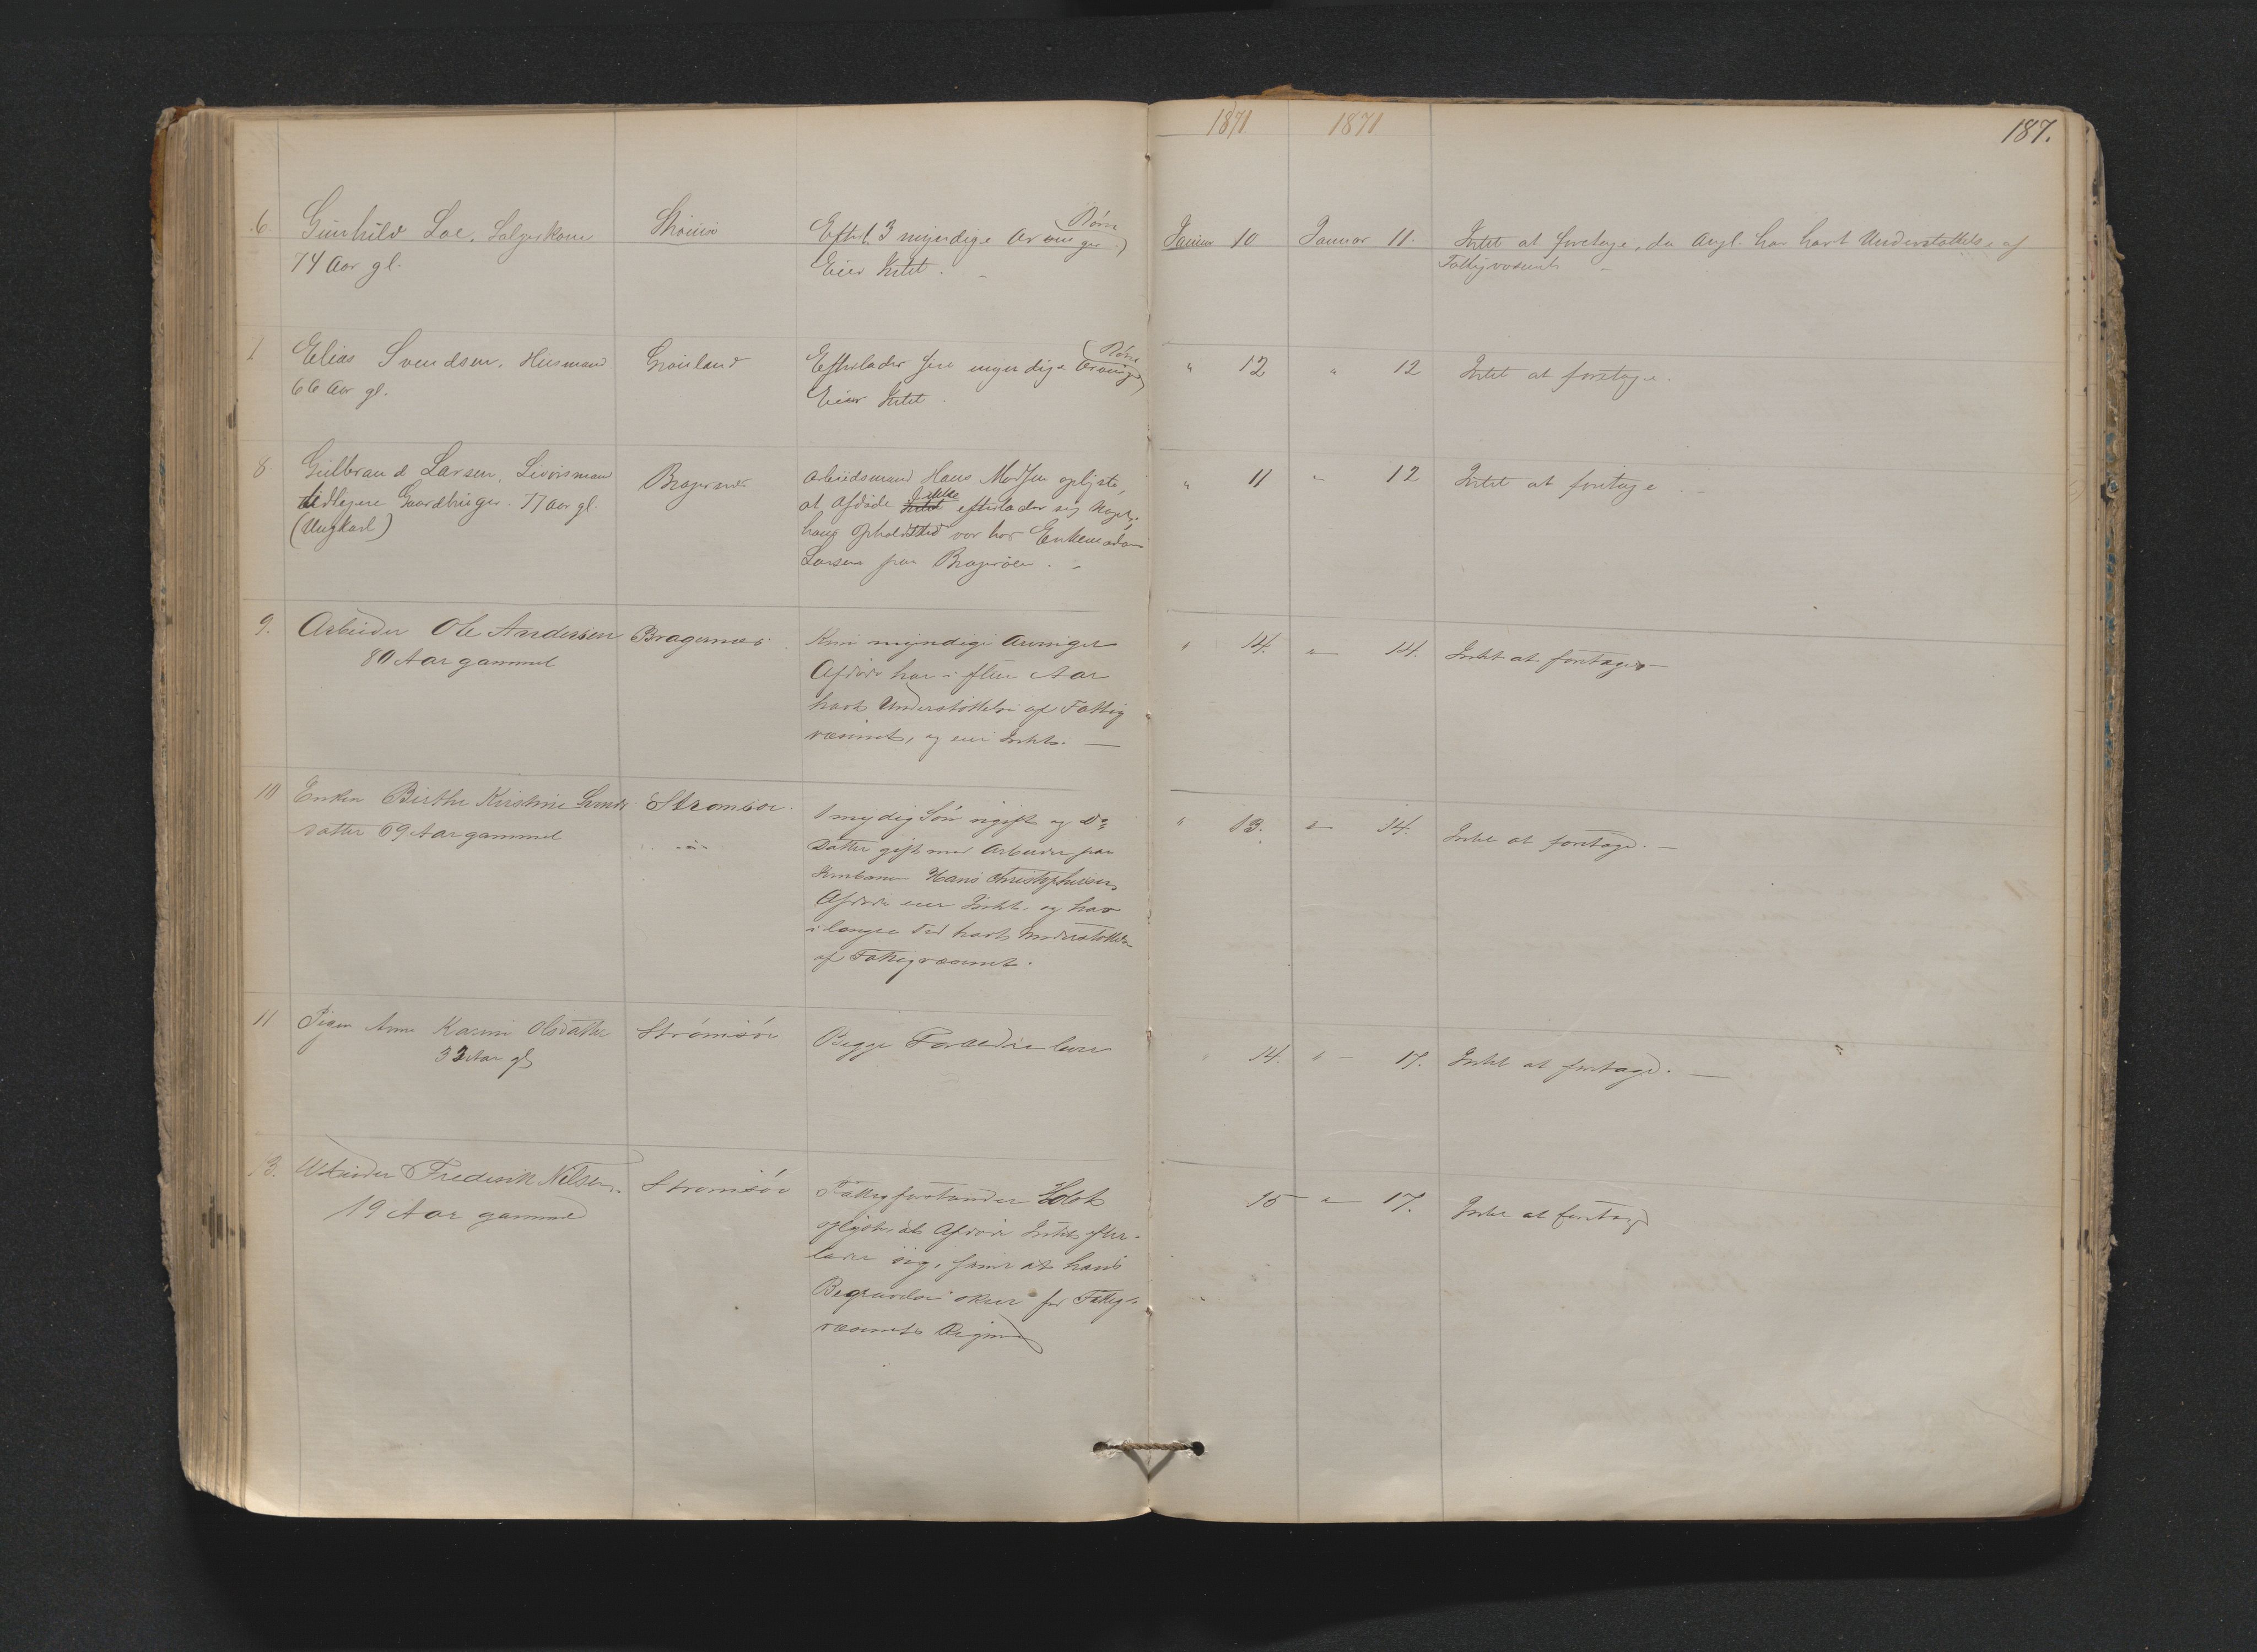 1871 1871 187.
6. Gunhild Loe, Selgerkone
74 Aar gl.
Strømsø
Efterl. 3 myndige Arvinger (Børn)
Eier Intet.
Januar 10 Januar 11. Intet at foretage, da Angl. har havt Understøttelse af
Fattigvæsenet
Elias Svendsen, Huusmand
66 Aar gl.
Grønland
Efterlader sin myndige Arvinger (Børn)
Eier Intet.
" 12 " 12 Intet at foretage.
8. Gulbrand Larsen,
Gaardbruger. 77 Aar gl.
(Ungkarl)
Bragernæs
Arbeidsmand Hans Madsen oplyste,
at Afdøde ikke efterlader sig Noget,
hans Opholdsted var hos Enkemadam
Larsen paa Bragerøen.
" 11 " 12 Intet at foretage.
9. Arbeider Ole Andersen
80 Aar gammel
Bragernæs
Kun myndige Arvinger
Afdøde har i flere Aar
havt Understøttelse af Fattig
væsenet, og eier Intet. —
" 14. " 14. Intet at foretage —
10 Enken Birthe Kirstine
datter 69 Aar gammel
Strømsøe.
1 myndig Søn ugift og Do
Datter gift med Arbeider paa
Jernbanen Hans Christophersen,
Afdøde eier Intet, og har
i længere Tid havt Understøttelse
af Fattigvæsenet.
" 13. " 14. Intet at foretage. —
11 Pigen Anne Karine Olsdatter
33 Aar gl
Strømsøe
Begge Forældre lever
14. " 17. Intet at foretage. —
13. Arbeider Frederik Nilsen.
19 Aar gammel
Strømsøe
Fattigforstander
oplyste, at Afdøde Intet efter-
lader sig, samt at hans
Begravelse skeer for Fattig-
væsenets Regning
15 " 17. Intet at foretage